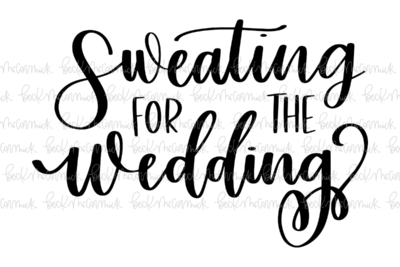 Sweating
FOR THE
wedding